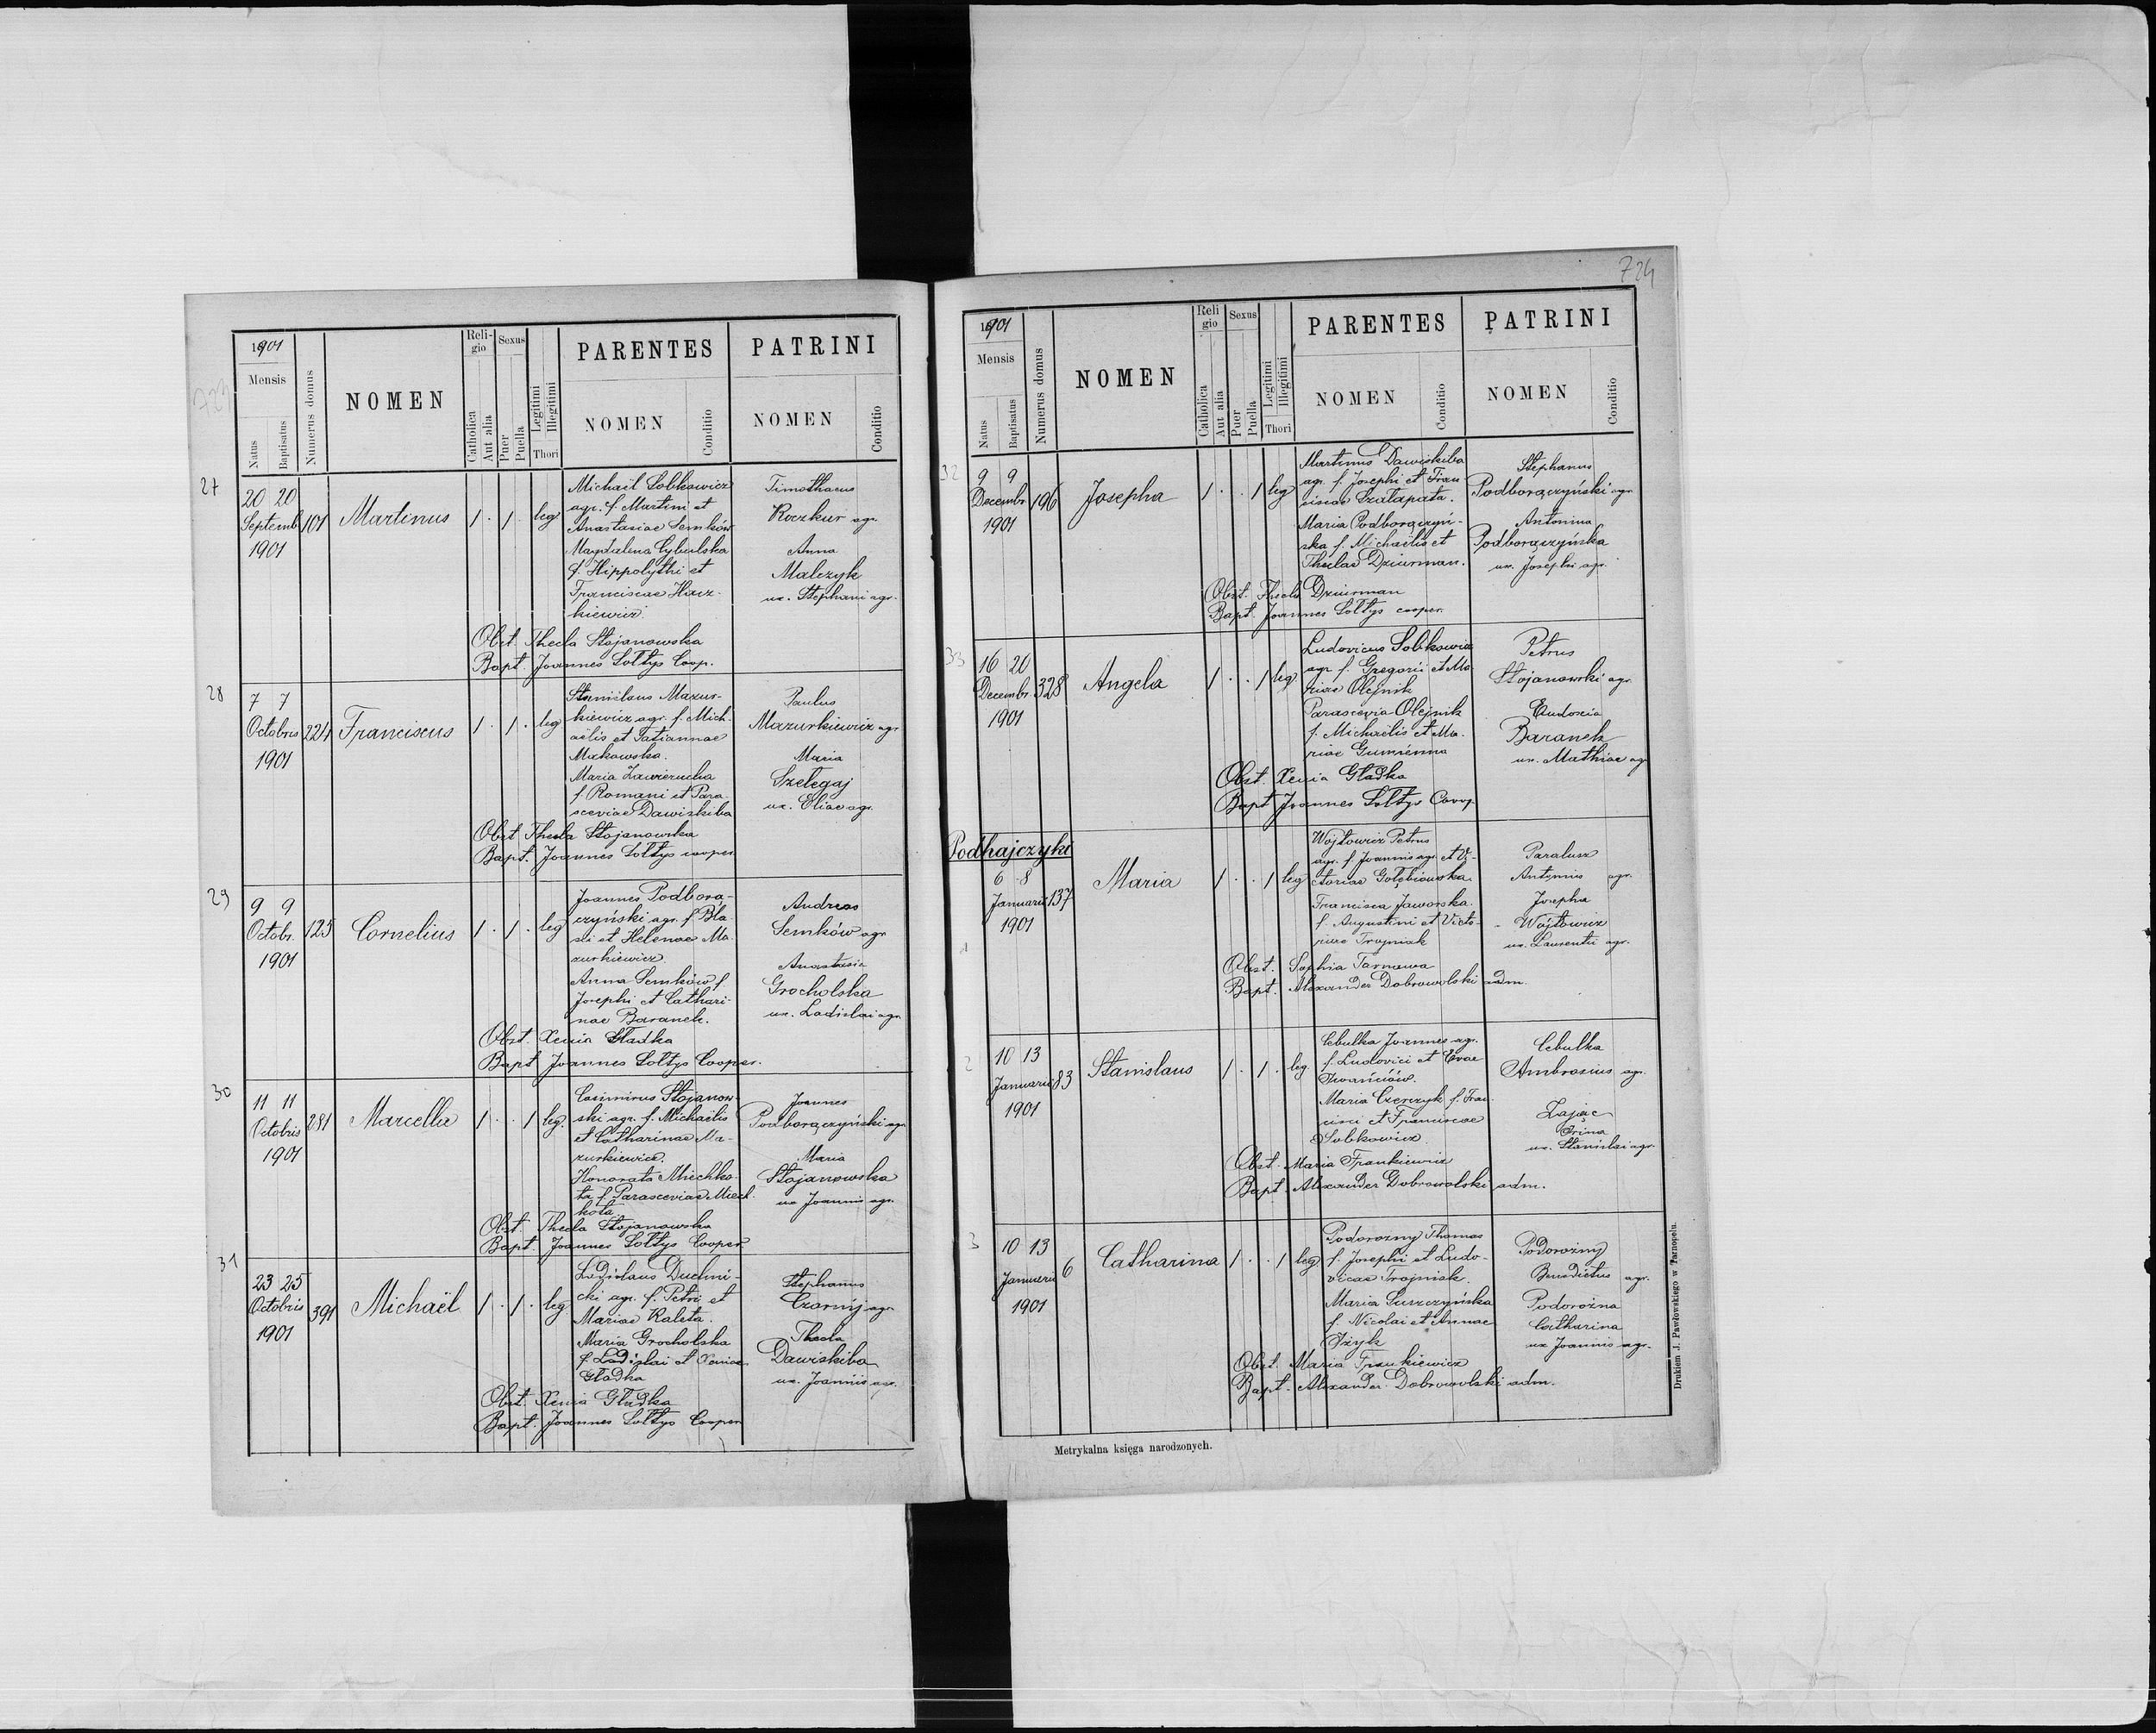 1901
Mensis
Natus
Baptisatus
Numerus domus
NOMEN
Reli-
gio
Catholica
Aut alia
Sexus
Puer
Puella
Legitimi
Illegitimi
Thori
PARENTES
NOMEN
Conditio
PATRINI
NOMEN
Conditio
27
20 20
Septemb
1901
101
Martinus
1 . 1 . leg
Michaël Sobkowicz
agr. f. Martini et
Anastasiae Semków
Magdalena Cybulska
f. Hippolythi et
Franciscae Hacz-
kiewicz.
Timothaeus
Koczkur agr.
Anna
Malczyk
ux. Stephani agr.
Obst. Thecla Stojanowska
Bapt. Joannes Sołtys Coop.
28
7 7
Octobris
1901
224
Franciscus
1 . 1 . leg
Stanislaus Mazur-
kiewicz agr. f. Mich-
aëlis et Tatiannae
Makowska.
Maria Zawierucha
f. Romani et Para-
sceviae Dawiskiba
Paulus
Mazurkiewicz agr
Maria
Szelegaj
ux. Eliae agr.
Obst. Thecla Stojanowska
Bapt. Joannes Sołtys cooper
29
9 9
Octobr.
1901
125
Cornelius
1 . 1 . leg
Joannes Podbora-
czyński agr. f. Bla-
sii et Helenae Ma-
zurkiewicz.
Anna Semków f.
Josephi et Cathari-
nae Baranek.
Andreas
Semków agr
Anastasia
Grocholska
ux. Ladislai agr.
Obst. Xenia Gładka
Bapt. Joannes Sołtys Cooper.
30
11 11
Octobris
1901
281
Marcella
1 . . 1 leg.
Casimirus Stojanow-
ski agr. f. Michaëlis
et Catharinae Ma-
zurkiewicz.
Honorata Miechko-
ta f. Parasceviae Miech-
kota.
Joannes
Podborączyński agr
Maria
Stojanowska
ux Joannis agr.
Obst. Thecla Stojanowska
Bapt. Joannes Sołtys Cooper.
31
23 25
Octobris
1901
391
Michaël
1 . 1 . leg
Ladislaus Duchni-
cki agr. f. Petri et
Mariae Kaleta.
Maria Grocholska
f. Ladislai et Xeniae
Gładka
Stephanus
Czornyj agr
Thecla
Dawiskiba
ux. Joannis agr.
Obst. Xenia Gładka
Bapt. Joannes Sołtys Cooper
724
1901
Mensis
Natus
Baptisatus
Numerus domus
NOMEN
Reli
gio
Catholica
Aut alia
Sexus
Puer
Puella
Legitimi
Illegitimi
Thori
PARENTES
NOMEN
Conditio
PATRINI
NOMEN
Conditio
32
9 9
Decembr
1901
196
Josepha
1 . . 1 leg
Martinus Dawiskiba
agr. f. Josephi et Fran
ciscae Szałapata.
Maria Podborączyń-
ska f. Michaëlis et
Theclae Dziurman.
Stephanus
Podborączyński agr
Antonina
Podborączyńska
ux. Josephi agr.
Obst. Thecla Dziurman
Bapt. Joannes Sołtys cooper.
33
16 20
Decembr.
1901
328
Angela
1 . . 1 leg
Ludovicus Sobkowicz
agr. f. Gregorii et Ma
riae Olejnik
Parascevia Olejnik
f. Michaëlis et Ma-
riae Gumienna
Petrus
Stojanowski agr.
Eudoxia
Baranek
ux. Mathiae agr
Obst. Xenia Gładka
Bapt Joannes Sołtys Coop
Podhajczyki
1
6 8
Januarii
1901
137
Maria
1 . . 1 leg
Wojtowicz Petrus
agr. f. Joannis agr. et Vi-
ctoriae Gołębiowska.
Francisca Jaworska.
f. Augustini et Victo-
riae Trojniak
Paralusz
Antonius agr.
Josepha
Wojtowicz
ux. Laurentii agr.
Obst. Sophia Tarnawa
Bapt. Alexander Dobrowolski adm.
2
10 13
Januarii
1901
83
Stanislaus
1 . 1 . leg.
Cebulka Joannes agr.
f. Ludovici et Evae
Iwańców.
Maria Czerczyk f. Fran-
cisci et Franciscae
Sobkowicz.
Cebulka
Ambrosius agr.
Zając
Irina
ux. Stanislai agr.
Obst. Maria Frankiewicz
Bapt. Alexander Dobrowolski adm.
3
10 13
Januarii
1901
6
Catharina
1 . . 1 leg
Podorozny Thomas
f. Josephi et Ludo-
vicae Trojniak.
Maria Suszczyńska
f. Nicolai et Annae
Iżyk
Podorożny
Benedictus agr.
Podorożna
Catharina
ux Joannis agr.
Obst. Maria Frankiewicz
Bapt. Alexander Dobrowolski adm.
Metrykalna księga narodzonych.
Drukiem J. Pawłowskiego w Tarnopolu.